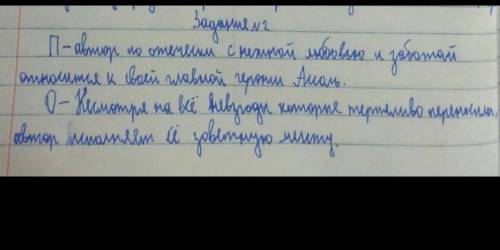 Задание №2
П - автор по отечески с нежной любовью и заботай
относится к своей главной героини Ассоль.
О - Несмотря на всё невзгоды которые терпеливо переносила,
автор исполняет её зоветную мечту.